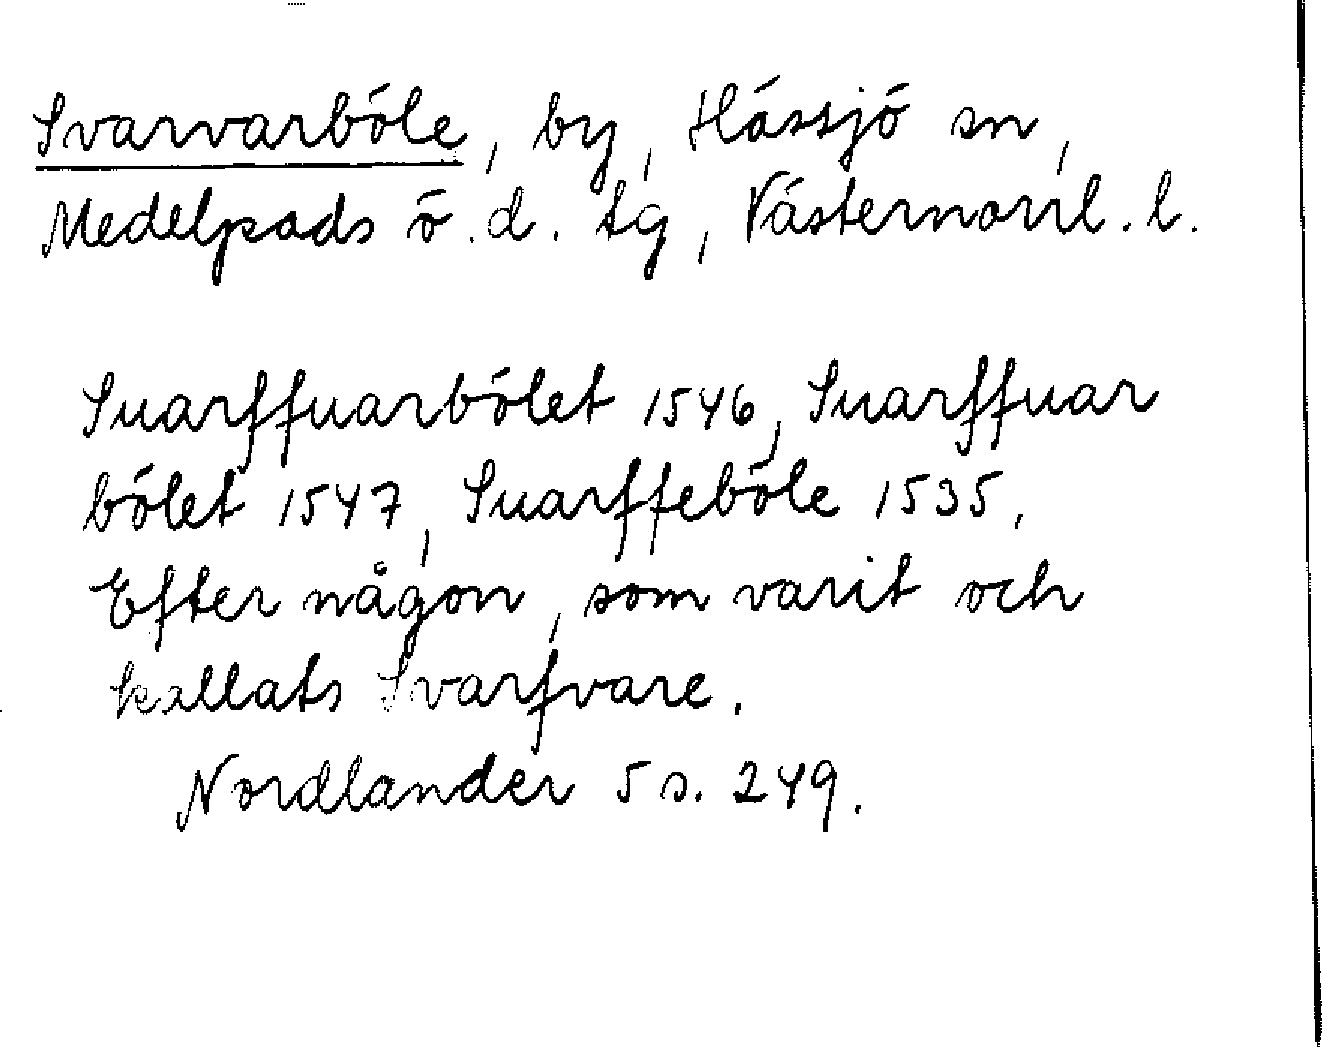 Svarvarböle, by, Hässjö sn,
Medelpads ö.d. tg, Västernorrl. l.
Suarffuarbölet 1546, Suarffuar
bölet 1547, Suarffeböle 1535.
Efter någon, som varit och
kallats Svarfvare.
Nordlander 5 s. 249.